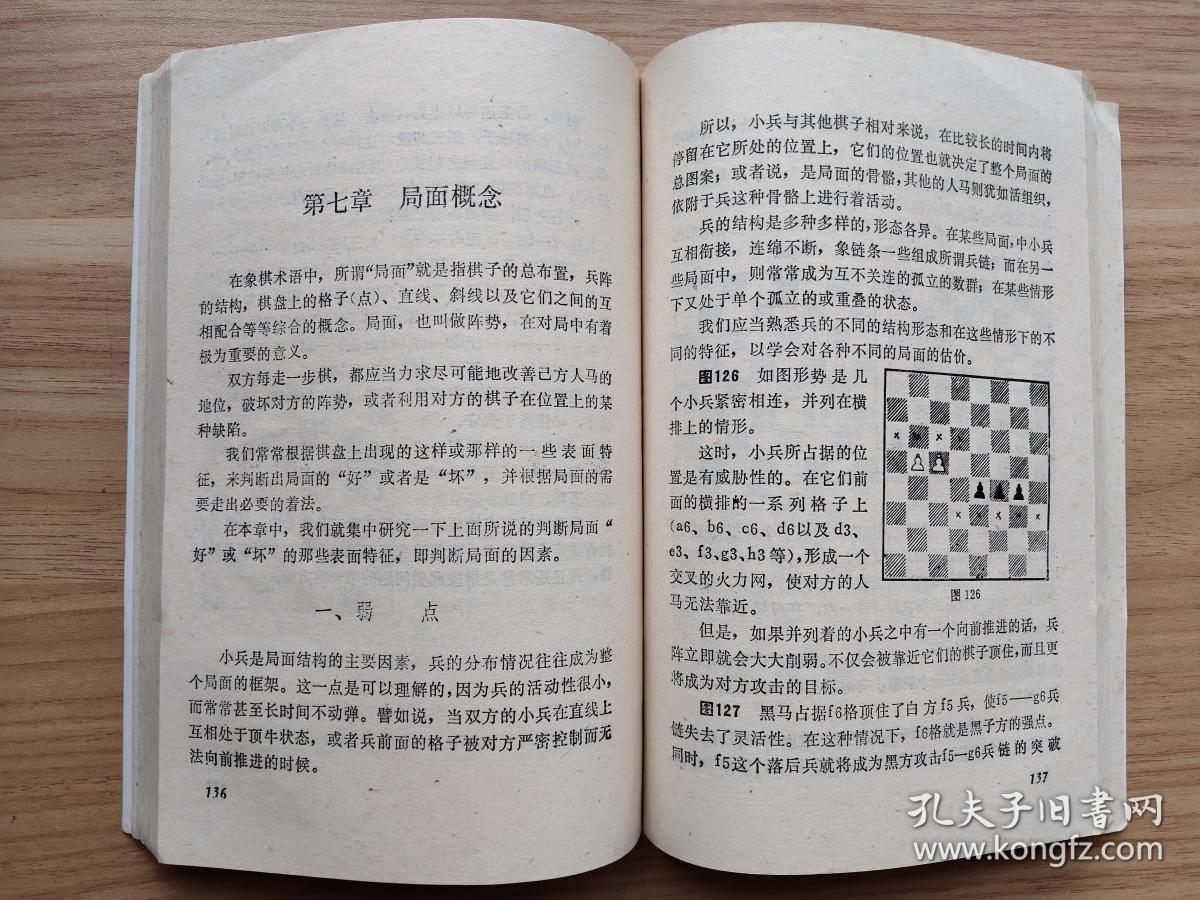 第七章 局面概念
在象棋术语中，所谓“局面”就是指棋子的总布置，兵阵
的结构，棋盘上的格子(点)、直线、斜线以及它们之间的互
相配合等等综合的概念。局面，也叫做阵势，在对局中有着
极为重要的意义。
双方每走一步棋，都应当力求尽可能地改善己方人马的
地位，破坏对方的阵势，或者利用对方的棋子在位置上的某
种缺陷。
我们常常根据棋盘上出现的这样或那样的一些表面特
征，来判断出局面的“好”或者是“坏”，并根据局面的需
要走出必要的着法。
在本章中，我们就集中研究一下上面所说的判断局面“
好”或“坏”的那些表面特征，即判断局面的因素。
一、弱 点
小兵是局面结构的主要因素，兵的分布情况往往成为整
个局面的框架。这一点是可以理解的，因为兵的活动性很小，
而常常甚至长时间不动弹。譬如说，当双方的小兵在直线上
互相处于顶牛状态，或者兵前面的格子被对方严密控制而无
法向前推进的时候。
136
所以，小兵与其他棋子相对来说，在比较长的时间内将
停留在它所处的位置上，它们的位置也就决定了整个局面的
总图案；或者说，是局面的骨骼，其他的人马则犹如活组织，
依附于兵这种骨骼上进行着活动。
兵的结构是多种多样的，形态各异。在某些局面，中小兵
互相衔接，连绵不断，象链条一些组成所谓兵链；而在另一
些局面中，则常常成为互不关连的孤立的数群；在某些情形
下又处于单个孤立的或重叠的状态。
我们应当熟悉兵的不同的结构形态和在这些情形下的不
同的特征，以学会对各种不同的局面的估价。
图126 如图形势是几
个小兵紧密相连，并列在横
排上的情形。
这时，小兵所占据的位
置是有威胁性的。在它们前
面的横排的一系列格子上
(a6、b6、c6、d6以及d3、
e3、f3、g3、h3等)，形成一个
交叉的火力网，使对方的人
马无法靠近。
图126
但是，如果并列着的小兵之中有一个向前推进的话，兵
阵立即就会大大削弱。不仅会被靠近它们的棋子顶住，而且更
将成为对方攻击的目标。
图127 黑马占据f6格顶住了白方f5兵，使f5——g6兵
链失去了灵活性。在这种情况下，f6格就是黑子方的强点。
同时，f5这个落后兵就将成为黑方攻击f5—g6兵链的突破
137
孔夫子旧书网
www.kongfz.com